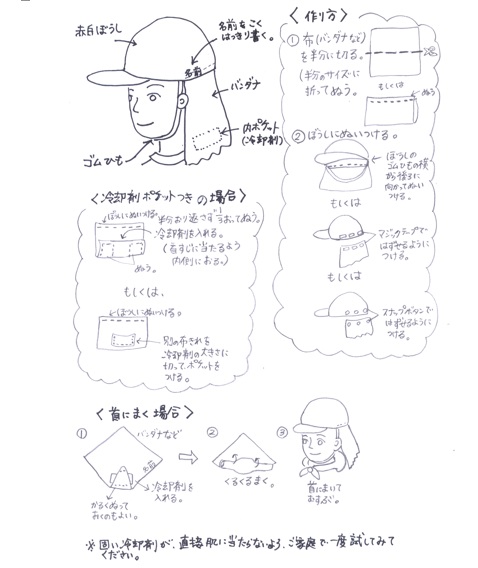 赤白ぼうし
名前をこく
はっきり書く。
名前
バンダナ
内ポケット
(冷却剤)
ゴムひも
〈作り方〉
① 布(バンダナなど)
を半分に切る。
(半分のサイズに
折ってぬう。
もしくは
ぬう
② ぼうしにぬいつける。
ぼうしの
ゴムひもの横
から後ろに
向かってぬい
つける。
もしくは
マジックテープで
はずせるように
つける。
もしくは
スナップボタンで
はずせるように
つける。
〈冷却剤ポケットつきの場合〉
ぼうしにぬいつける。
半分おり返さず1/3おってぬう。
冷却剤を入れる。
(首すじに当たるよう
内側におる。)
ぬう。
もしくは、
ぼうしにぬいつける。
別の布きれを
冷却剤の大きさに
切って、ポケットを
つける。
〈首にまく場合〉
① バンダナなど
名前
冷却剤を
入れる。
かるくぬって
おくのもよい。
②
くるくるまく。
③
首にまいて
むすぶ。
※固い冷却剤が、直接肌に当たらないよう、ご家庭で一度試してみて
ください。